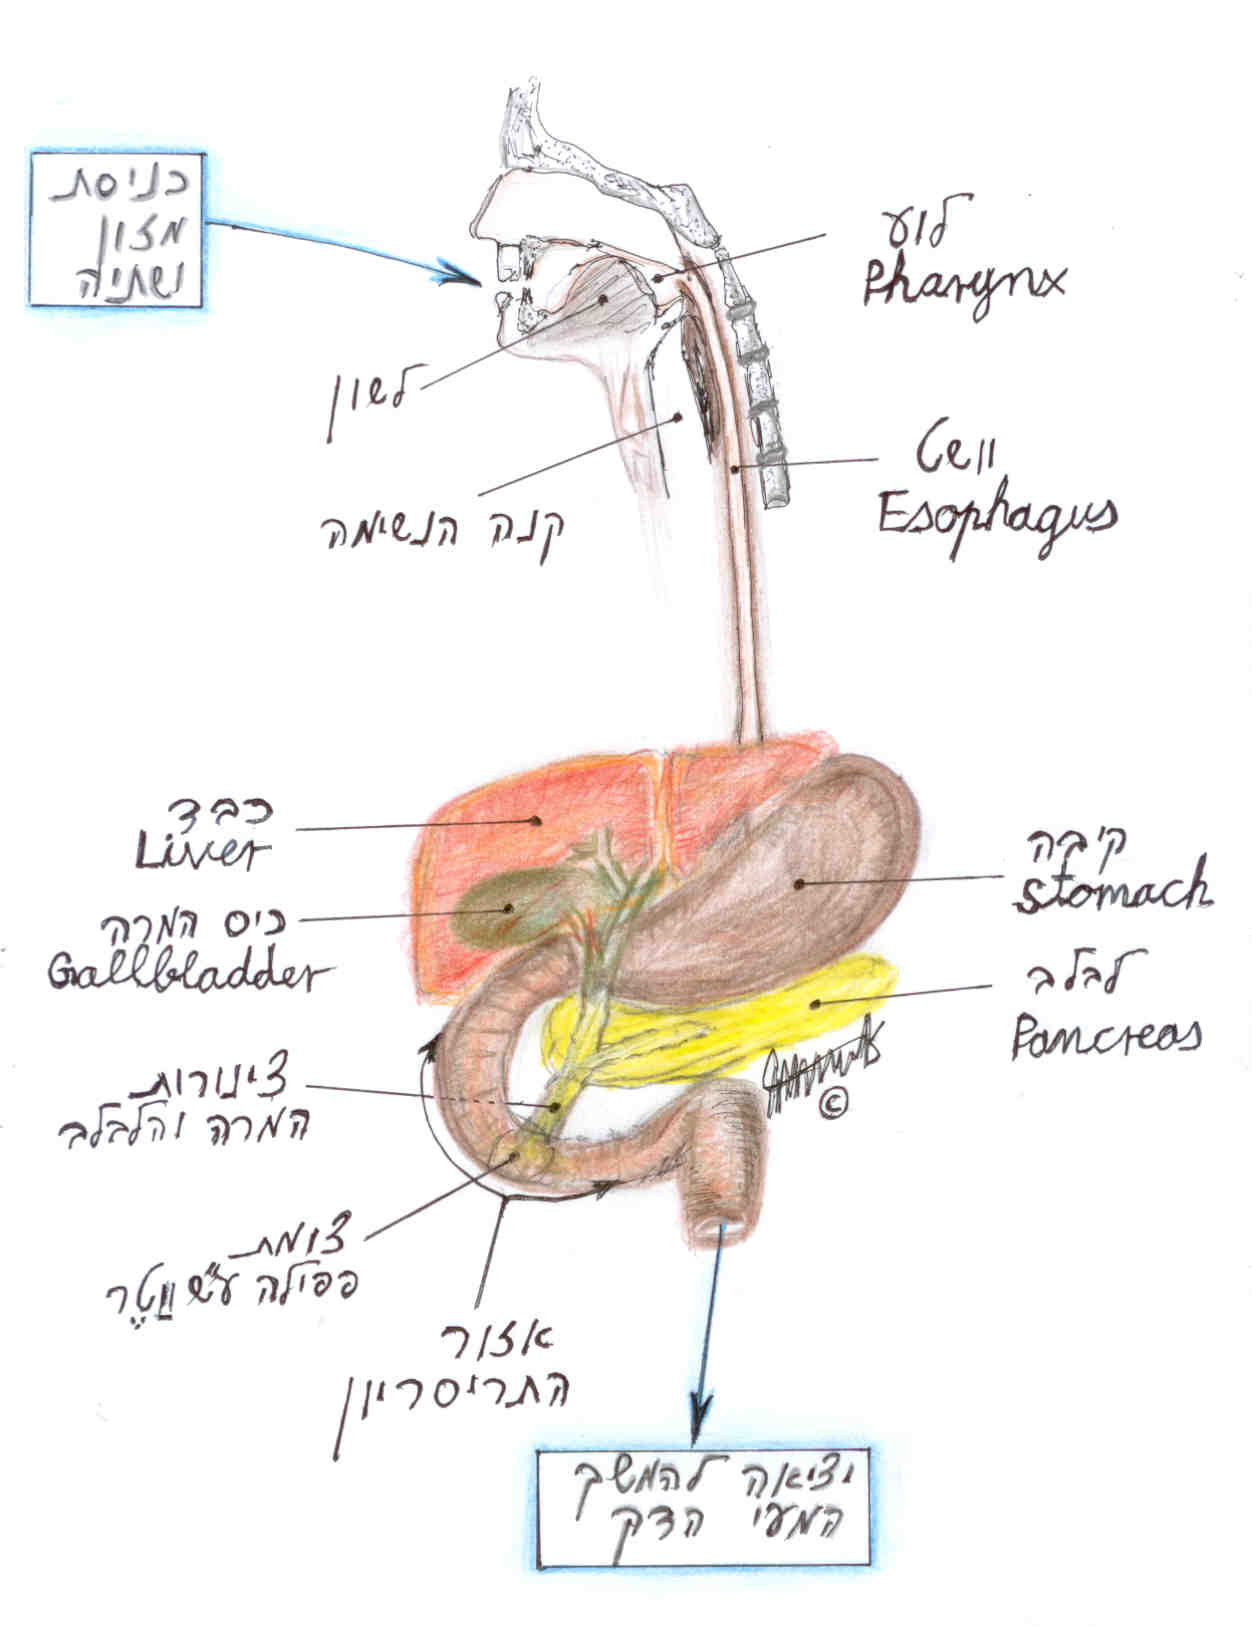 כניסת
מזון
ושתיה
לוע
Pharynx
לשון
וושט
Esophagus
קנה הנשימה
כבד
Liver
קיבה
Stomach
כיס המרה
Gallbladder
לבלב
Pancreas
צינורות
המרה והלבלב
©
צומת
פפילה ע"ש וָטֶר
אזור
התריסריון
יציאה להמשך
המעי הדק